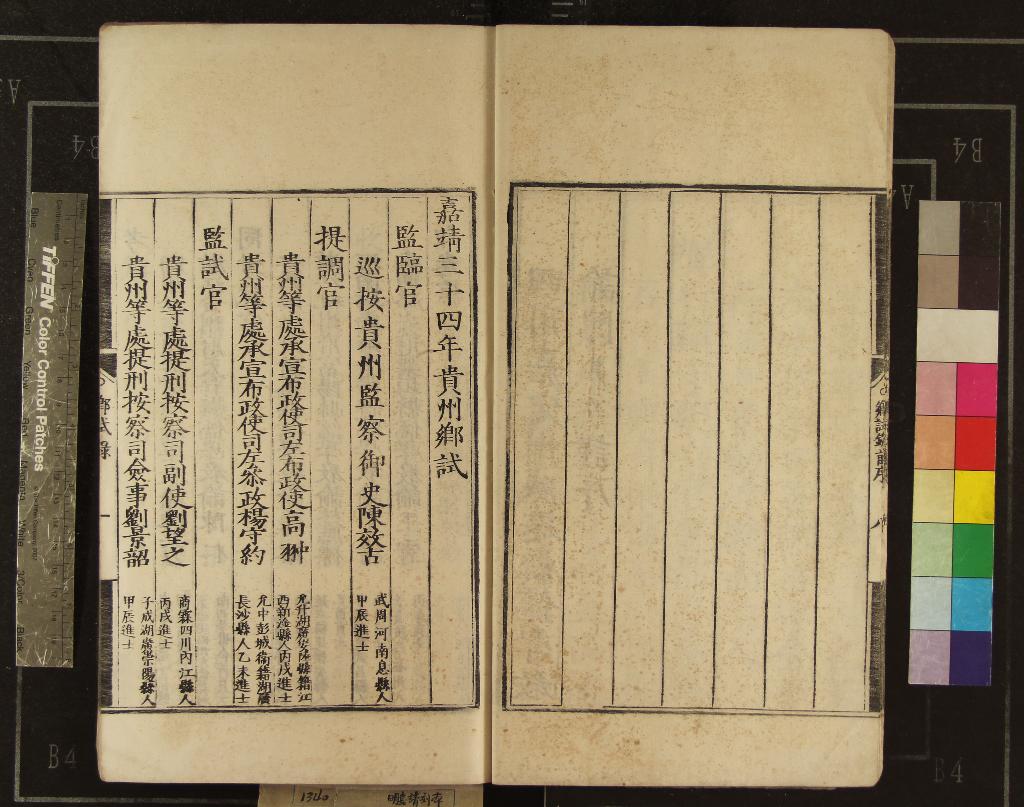 鄉試錄前序
嘉靖三十四年貴州鄉試
監臨官
巡按貴州監察御史陳效古
武周河南息縣人
甲辰進士
提調官
貴州等處承宣布政使司左布政使高翀
允升湖廣安陸縣籍江
西新淦縣人丙戌進士
貴州等處承宣布政使司左叅政楊守約
允中彭城衞籍湖廣
長沙縣人乙未進士
監試官
貴州等處提刑按察司副使劉望之
商霖四川內江縣人
丙戌進士
貴州等處提刑按察司僉事劉景韶
子成湖廣崇陽縣人
甲辰進士
鄉試錄
一
TIFFEN Color Control Patches
B4
B4
B4
B4
1340